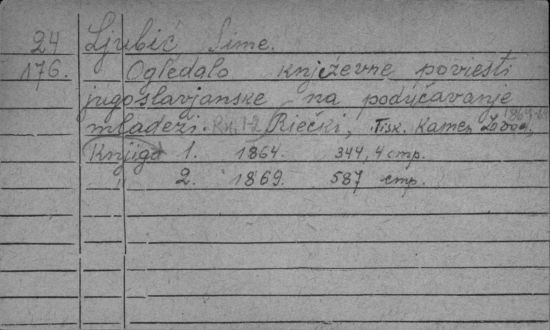 24 Ljubić Sime.
176. Ogledalo književne poviesti
jugoslavjanske na podučavanje
mladeži. Kn. 1-2 Riečki, Tisk. Kamen
Knjiga 1. 1864. 344, 4 стр.
" 2. 1869. 587 стр.